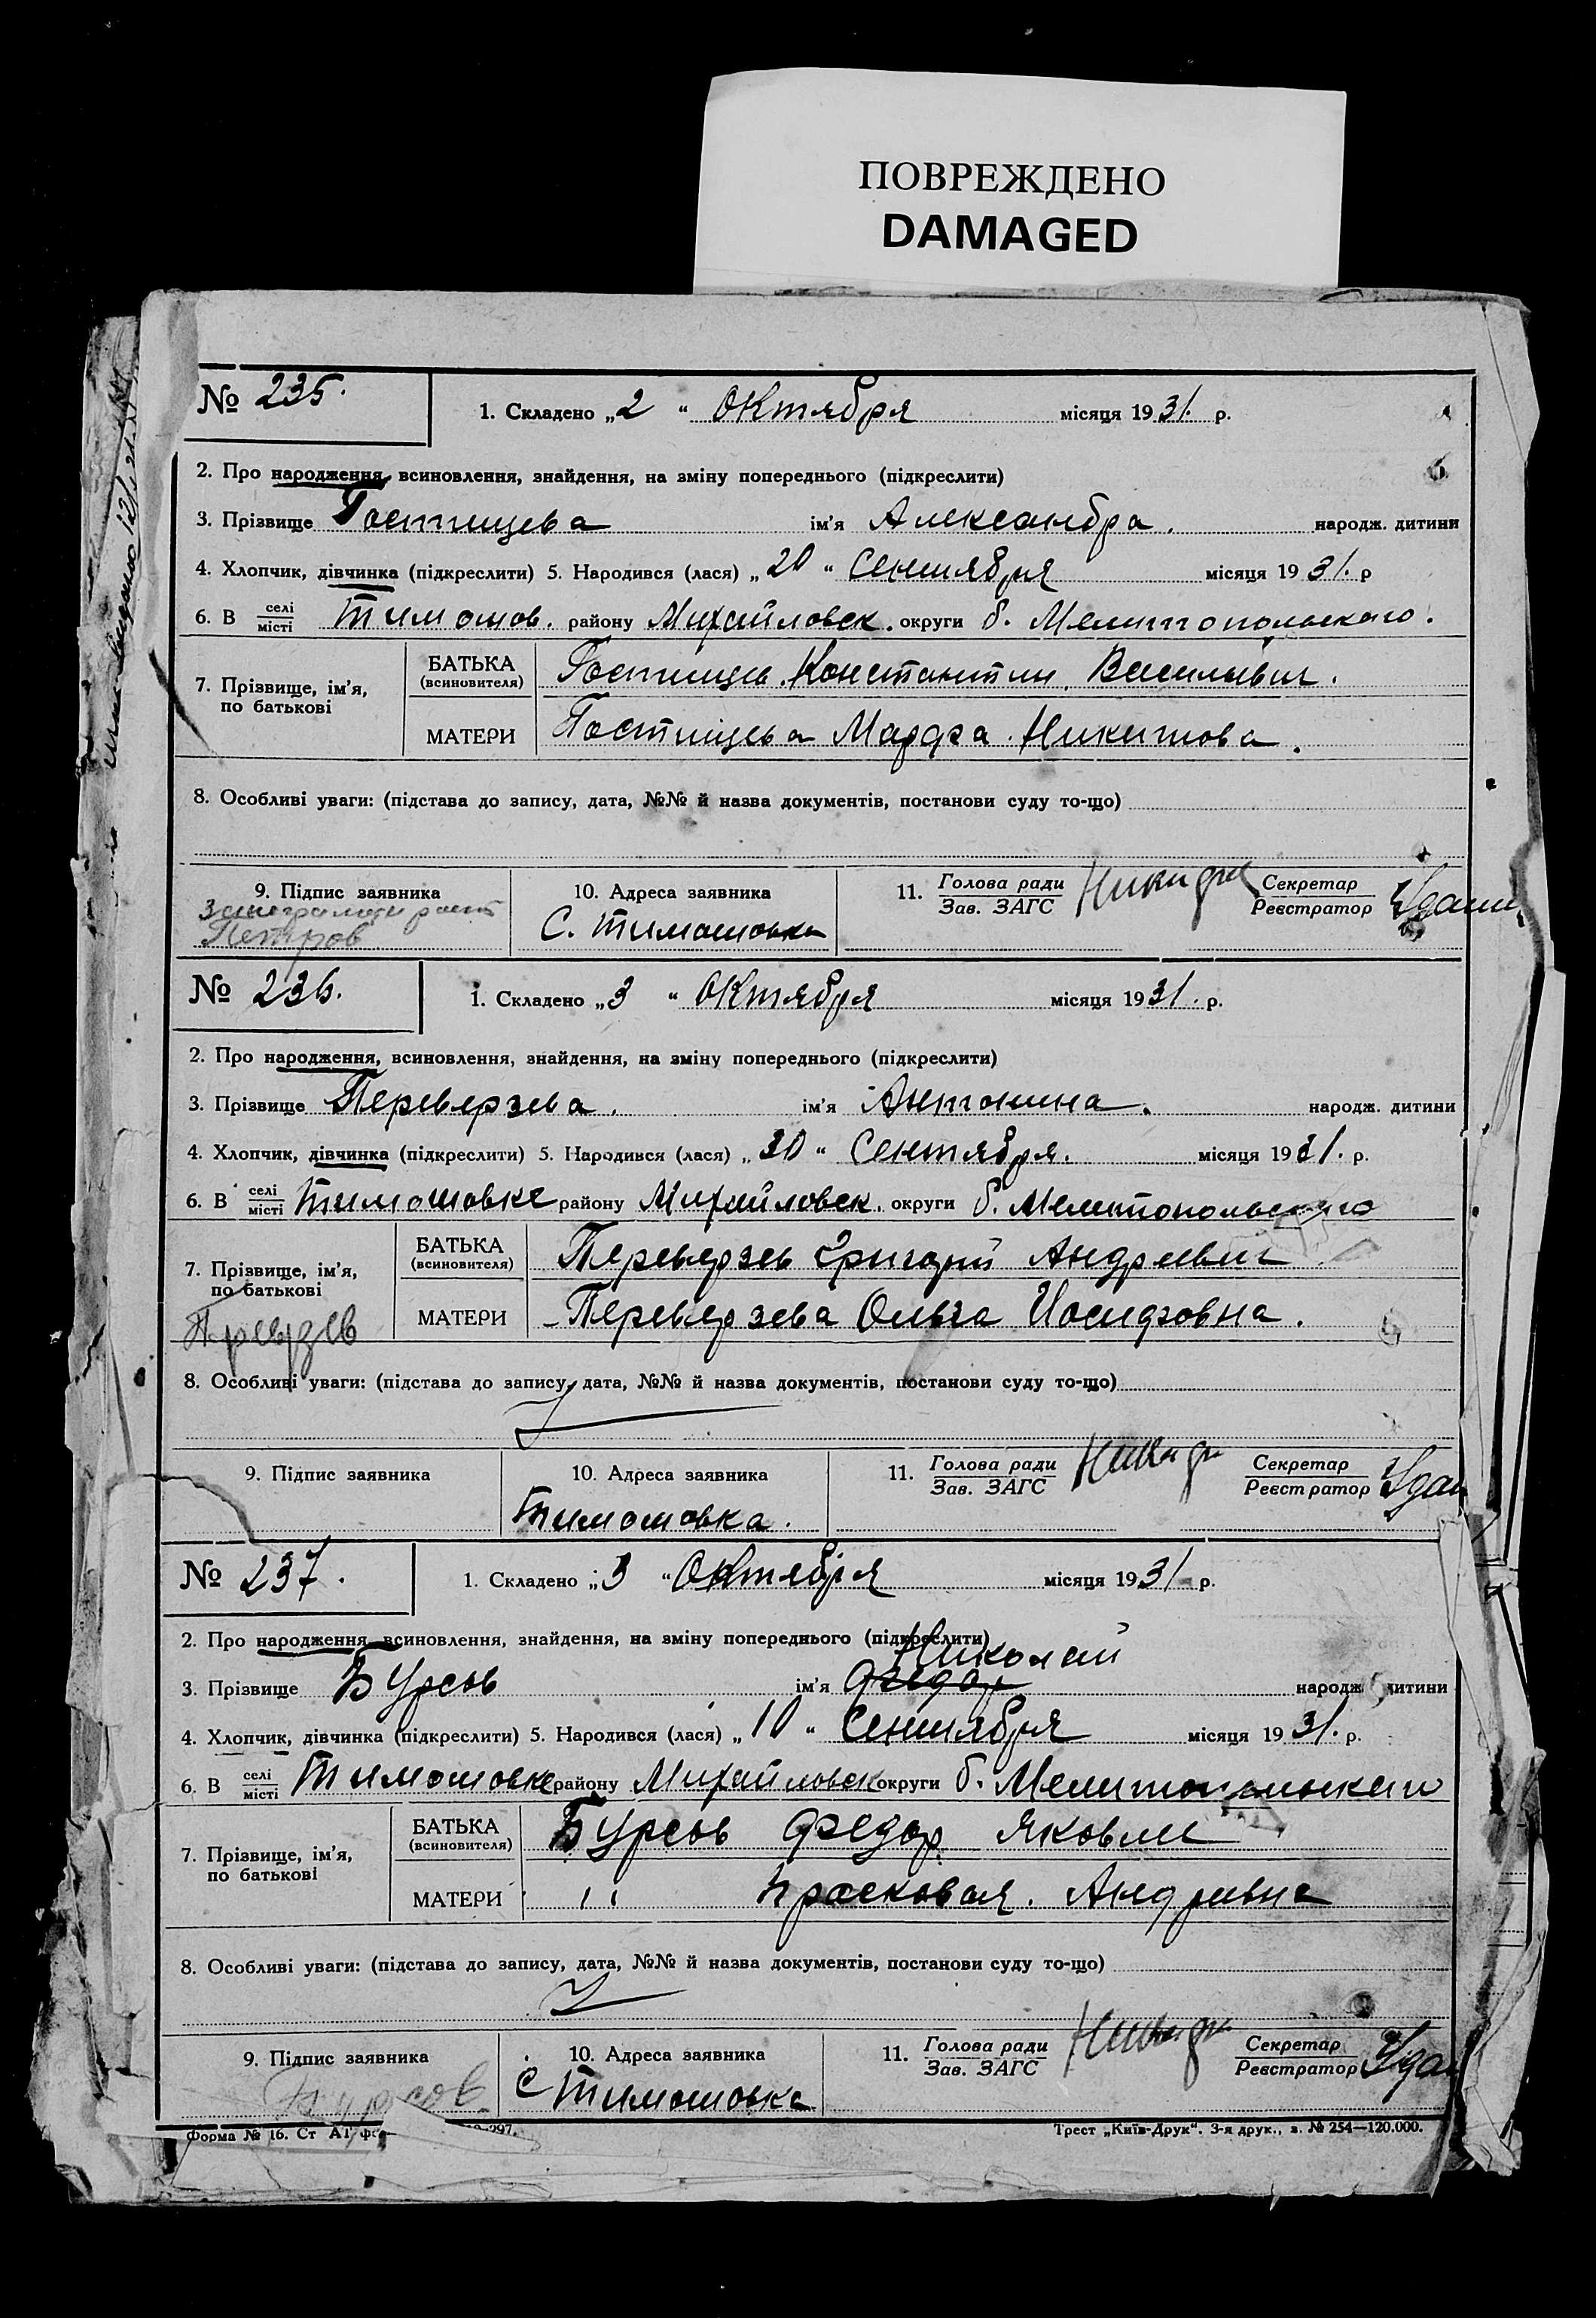 ПОВРЕЖДЕНО
DAMAGED
№ 235.
1. Складено „2“ Октября місяця 1931. р.
2. Про народження, всиновлення, знайдення, на зміну попереднього (підкреслити)
3. Прізвище Гостищева ім'я Александра. народж. дитини
4. Хлопчик, дівчинка (підкреслити) 5. Народився (лася) „20“ Сентября місяця 1931. р
6. В селі/місті Тимошов. району Михайловск. округи б. Мелитопольского.
7. Прізвище, ім'я, по батькові
БАТЬКА (всиновителя) Гостищев Константин Васильевич.
МАТЕРИ Гостищева Марфа Никитова.
8. Особливі уваги: (підстава до запису, дата, №№ й назва документів, постанови суду то-що)
9. Підпис заявника 10. Адреса заявника 11. Голова ради/Зав. ЗАГС Секретар/Реєстратор
Петров С. Тимошовка
№ 236.
1. Складено „3“ Октября місяця 1931. р.
2. Про народження, всиновлення, знайдення, на зміну попереднього (підкреслити)
3. Прізвище Переверзева. ім'я Антонина. народж. дитини
4. Хлопчик, дівчинка (підкреслити) 5. Народився (лася) „30“ Сентября. місяця 1931. р.
6. В селі/місті Тимошовке району Михайловск. округи б. Мелитопольского
7. Прізвище, ім'я, по батькові
БАТЬКА (всиновителя) Переверзев Григорий Андреевич
МАТЕРИ Переверзева Ольга Иосифовна.
8. Особливі уваги: (підстава до запису, дата, №№ й назва документів, постанови суду то-що)
9. Підпис заявника 10. Адреса заявника 11. Голова ради/Зав. ЗАГС Секретар/Реєстратор
Тимошовка.
№ 237.
1. Складено „3“ Октября місяця 1931 р.
2. Про народження, всиновлення, знайдення, на зміну попереднього (підкреслити)
Николай
3. Прізвище Бурсов ім'я Федор народж. дитини
4. Хлопчик, дівчинка (підкреслити) 5. Народився (лася) „10“ Сентября місяця 1931. р.
6. В селі/місті Тимошовке району Михайловск округи б. Мелитопольского
7. Прізвище, ім'я, по батькові
БАТЬКА (всиновителя) Бурсов Федор Яковлев
МАТЕРИ " Прасковья. Андреевна
8. Особливі уваги: (підстава до запису, дата, №№ й назва документів, постанови суду то-що)
9. Підпис заявника 10. Адреса заявника 11. Голова ради/Зав. ЗАГС Секретар/Реєстратор
Бурсов С Тимошовка
Форма № 16. Ст А1 297.
Трест „Київ-Друк“. 3-я друк., з. № 254—120.000.